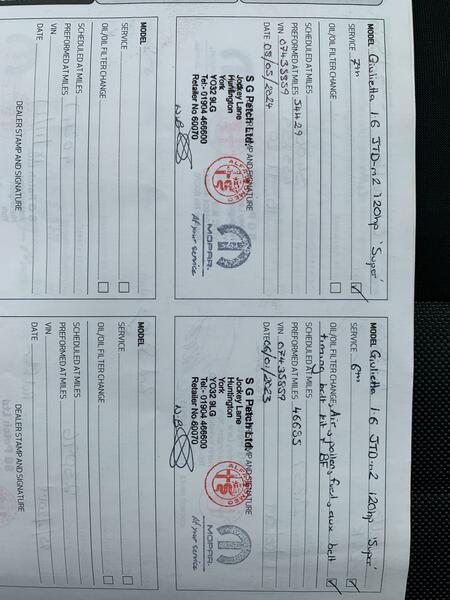 MODEL Giulietta 1.6 JTD-m2 120hp 'Super'
SERVICE 7th
OIL/OIL FILTER CHANGE
SCHEDULED AT MILES
PREFORMED AT MILES 54429
VIN 07435859
DATE 08/05/2024
STAMP AND SIGNATURE
S G Petch Ltd.
Jockey Lane
Huntington
York
YO32 9LG
Tel:- 01904 466600
Retailer No 60070
ALFA ROMEO
MOPAR.
At your service
MODEL
SERVICE
OIL/OIL FILTER CHANGE
SCHEDULED AT MILES
PREFORMED AT MILES
VIN
DATE
DEALER STAMP AND SIGNATURE
MODEL Giulietta 1.6 JTD-m2 120hp 'Super'
SERVICE 6th
OIL/OIL FILTER CHANGE, Air, pollen, fuel, aux belt
timing belt kit + BF
SCHEDULED AT MILES
PREFORMED AT MILES 46685
VIN 07435859
DATE 06/01/2023
STAMP AND SIGNATURE
S G Petch Ltd.
Jockey Lane
Huntington
York
YO32 9LG
Tel:- 01904 466600
Retailer No 60070
ALFA ROMEO
MOPAR.
At your service
MODEL
SERVICE
OIL/OIL FILTER CHANGE
SCHEDULED AT MILES
PREFORMED AT MILES
VIN
DATE
DEALER STAMP AND SIGNATURE